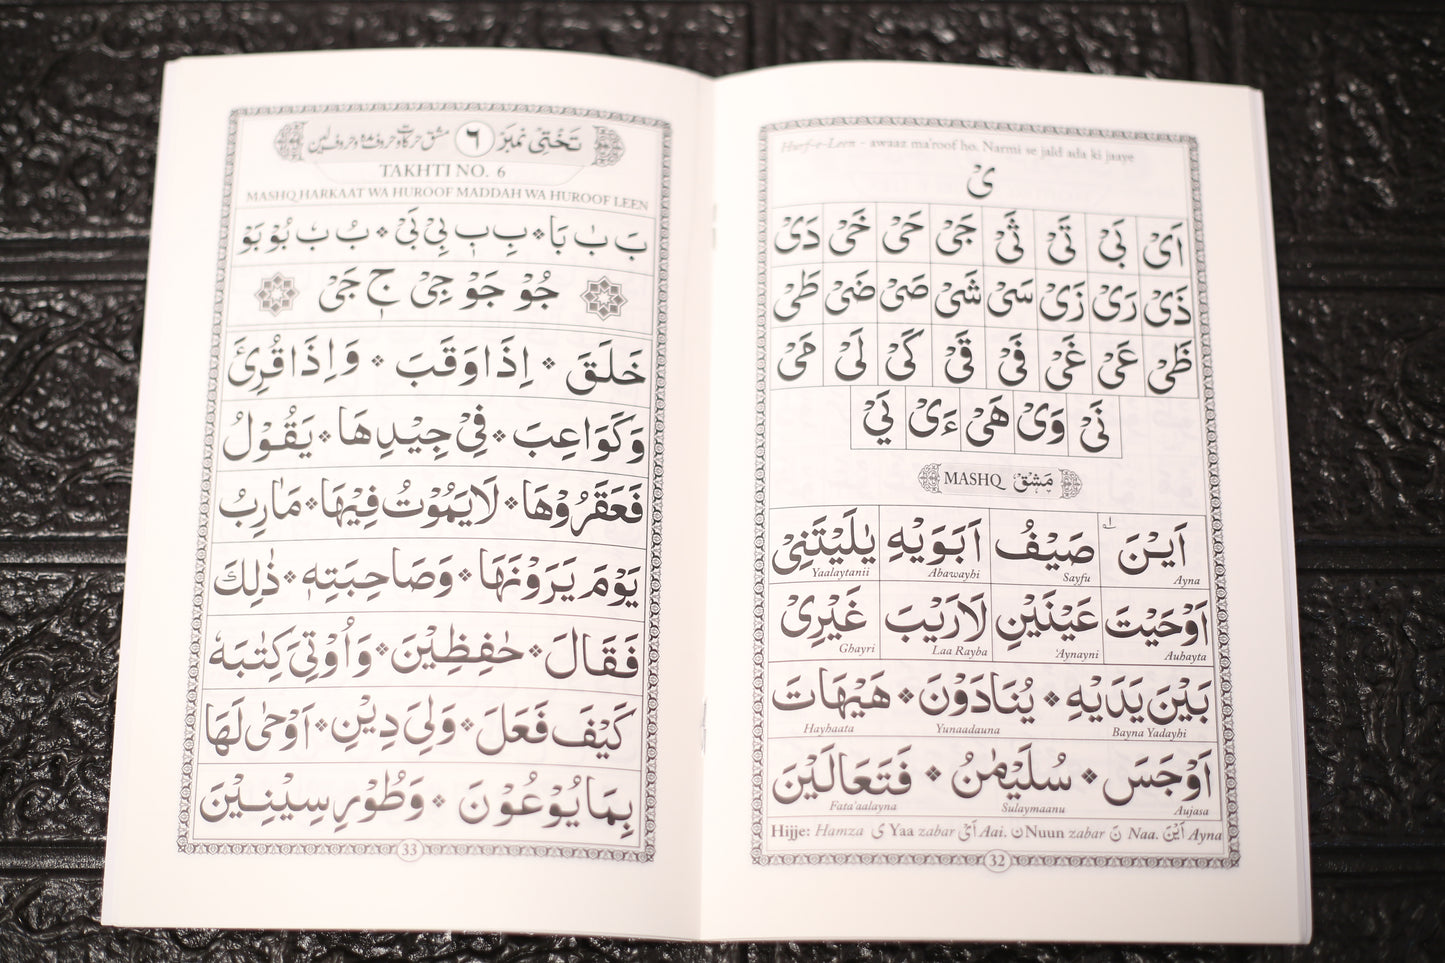 Hurf-e-Leen - awaaz ma'roof ho. Narmi se jald ada ki jaaye
یْ
اَیْ بَیْ تَیْ ثَیْ جَیْ حَیْ خَیْ دَیْ
ذَیْ رَیْ زَیْ سَیْ شَیْ صَیْ ضَیْ طَیْ
ظَیْ عَیْ غَیْ فَیْ قَیْ کَیْ لَیْ مَیْ
نَیْ وَیْ هَیْ ءَیْ یَیْ
MASHQ مَشق
اَیْنَ صَیْفُ اَبَوَیْهِ یٰلَیْتَنِیْ
Ayna Sayfu Abawayhi Yaalaytanii
اَوْحَیْتَ عَیْنَیْنِ لَارَیْبَ غَیْرِیْ
Auhayta 'Aynayni Laa Rayba Ghayri
بَیْنَ یَدَیْهِ ۞ یُنَادَوْنَ ۞ هَیْهَاتَ
Bayna Yadayhi Yunaadauna Hayhaata
اَوْجَسَ ۞ سُلَیْمٰنُ ۞ فَتَعَالَیْنَ
Aujasa Sulaymaanu Fata'aalayna
Hijje: Hamza یْ Yaa zabar اَیْ Aai. ن Nuun zabar نَ Naa. اَیْنَ Ayna
32
تَختِی نمبَر ٦ مشق حرکات و حروف مدہ و حروف لین
TAKHTI NO. 6
MASHQ HARKAAT WA HUROOF MADDAH WA HUROOF LEEN
بَ بٰ بَا ۞ بِ بٖ بِیْ بَیْ ۞ بُ بٗ بُوْ بَوْ
جُوْ جَوْ جِیْ جٖ جَیْ
خَلَقَ ۞ اِذَا وَقَبَ ۞ وَاِذَا قُرِئَ
وَکَوَاعِبَ ۞ فِیْ جِیْدِهَا ۞ یَقُوْلُ
فَعَقَرُوْهَا ۞ لَا یَمُوْتُ فِیْهَا ۞ مَاٰرِبُ
یَوْمَ یَرَوْنَهَا ۞ وَصَاحِبَتِهٖ ۞ ذٰلِكَ
فَقَالَ ۞ حٰفِظِیْنَ ۞ وَاُوْتِیَ کِتٰبَهٗ
کَیْفَ فَعَلَ ۞ وَلِیَ دِیْنِ ۞ اَوْحٰی لَهَا
بِمَا یُوْعُوْنَ ۞ وَطُوْرِ سِیْنِیْنَ
33